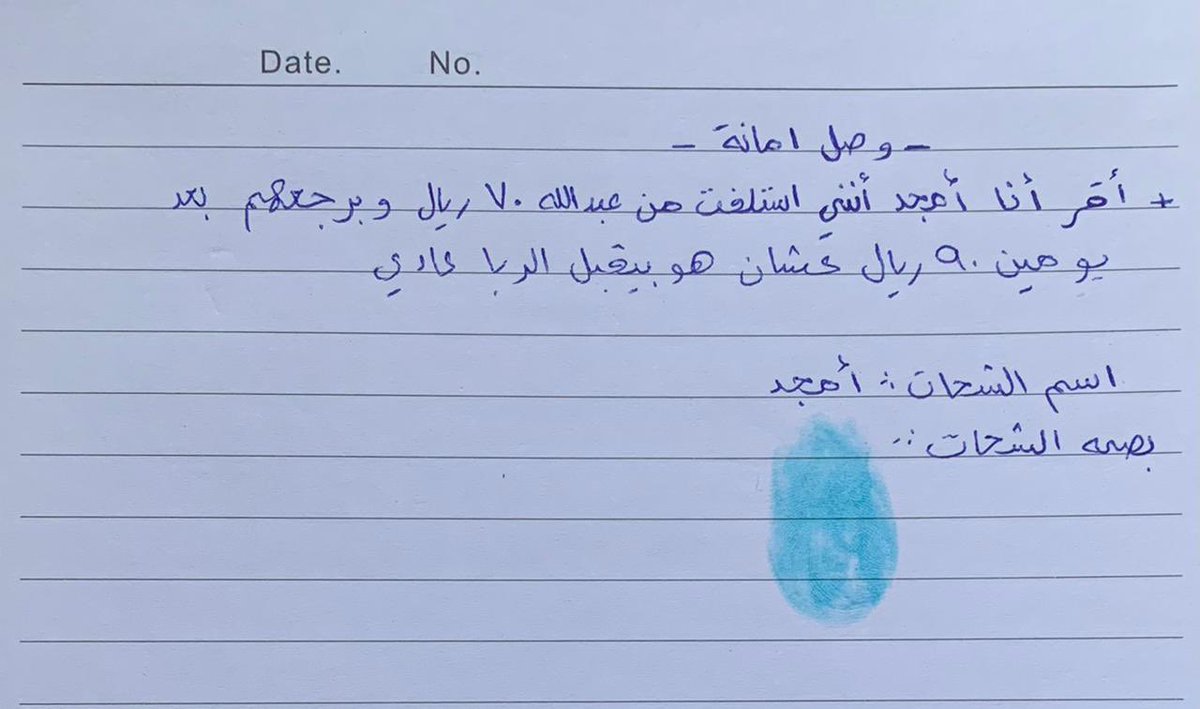 Date. No.
- وصل امانة -
+ أقر أنا أمجد أنني استلفت من عبدالله ٧٠ ريال وبرجعهم بعد
يومين ٩٠ ريال عشان هو بيقبل الربا عادي
اسم الشحات : أمجد
بصمه الشحات :